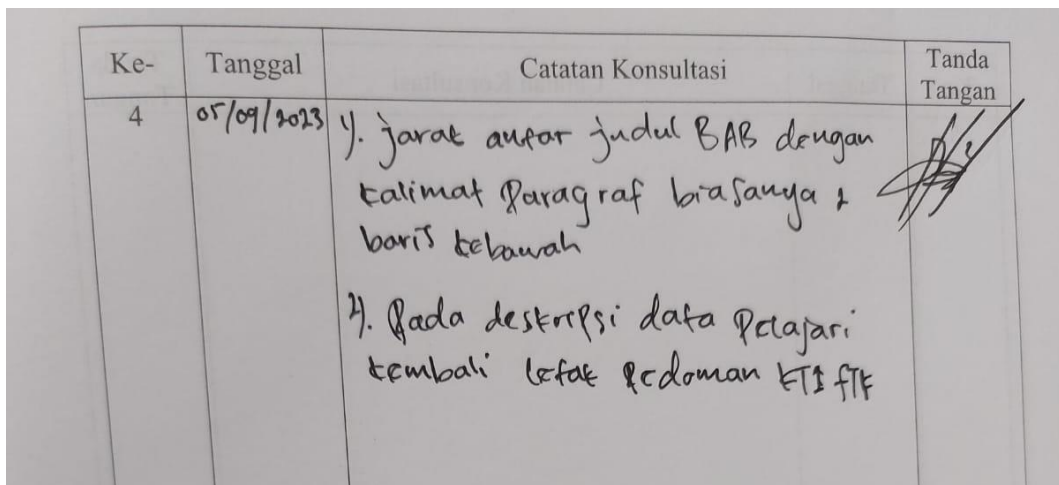 Ke- Tanggal Catatan Konsultasi Tanda Tangan
4 05/09/2023 1). jarak antar judul BAB dengan
kalimat Paragraf biasanya 2
baris kebawah
2). Pada deskripsi data Pelajari
kembali letak Pedoman KTI FTK